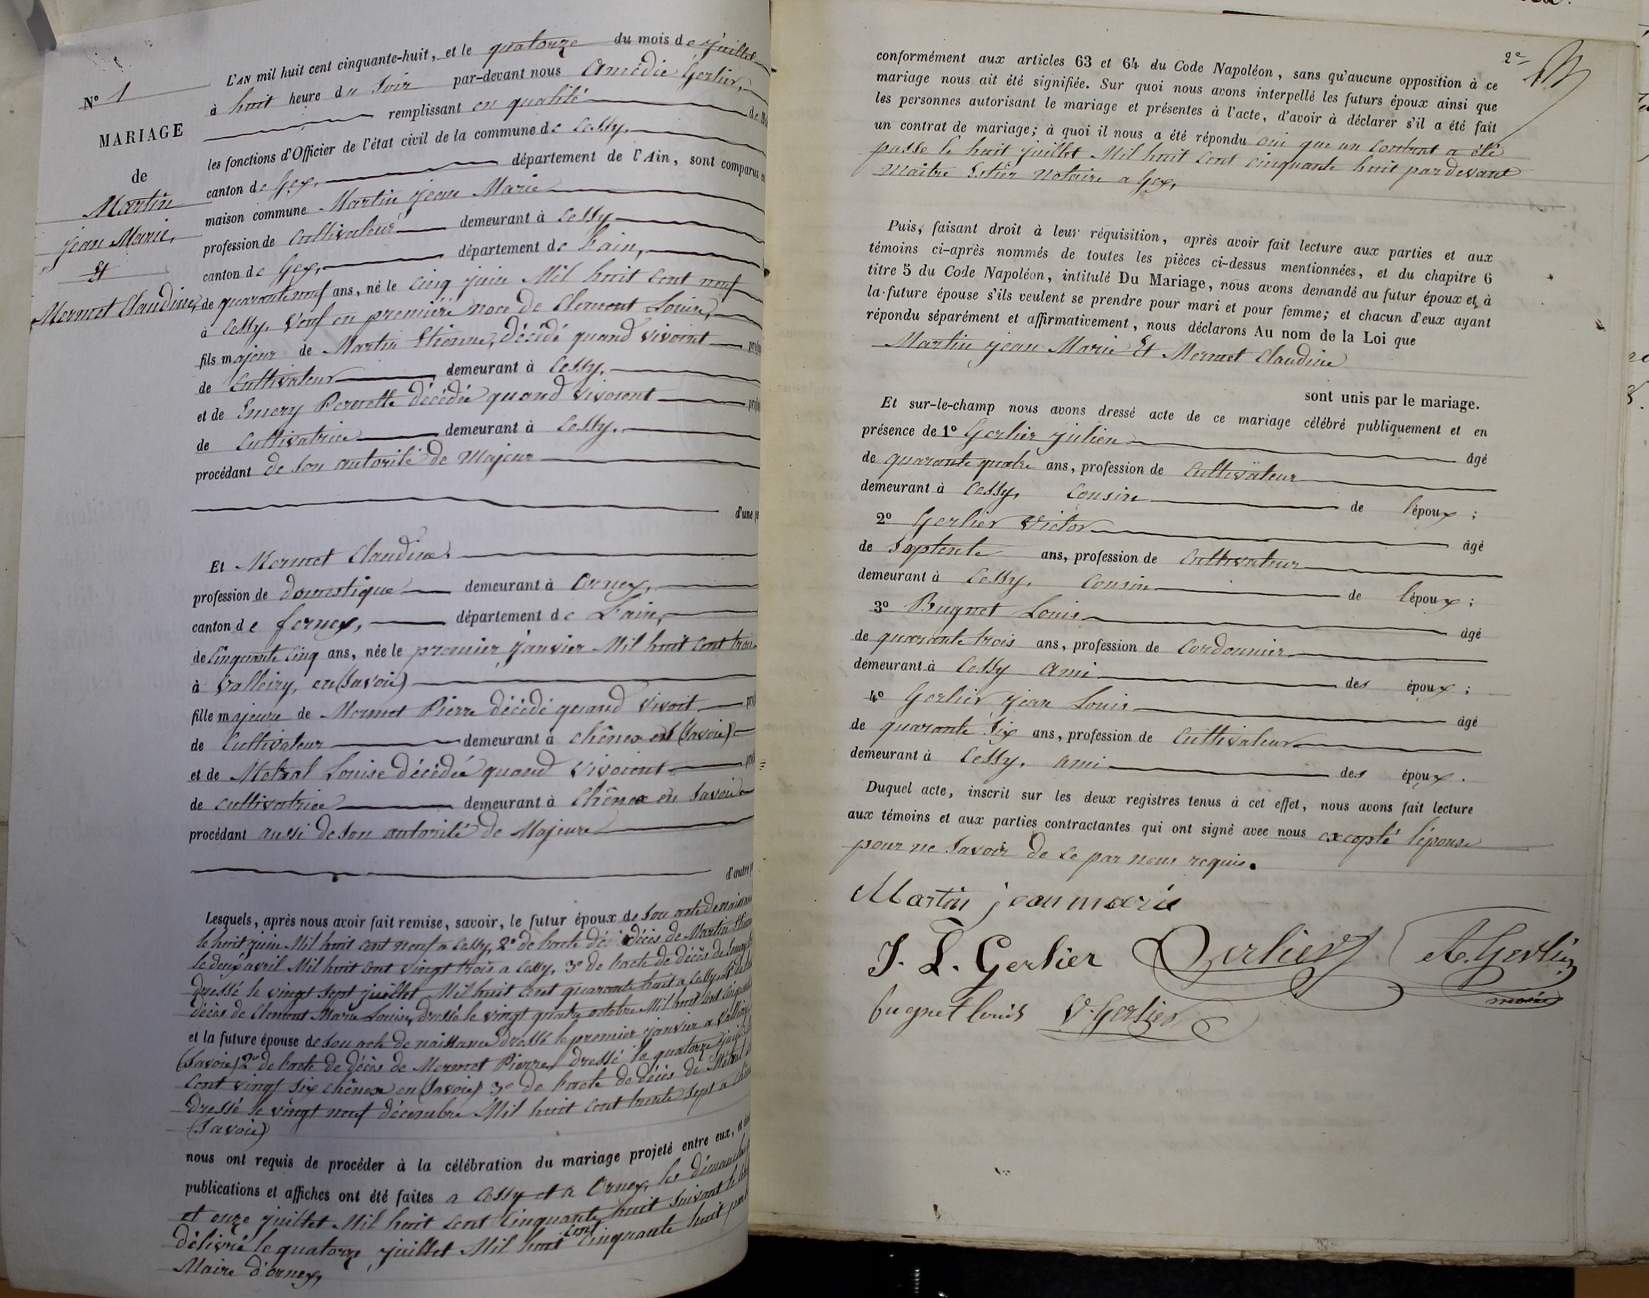 N° 1
MARIAGE
de
Martin
jean Marie,
Et
Mermet Claudine,
L'AN mil huit cent cinquante-huit, et le quatorze du mois de juillet
à huit heure du Soir par-devant nous Amédie Gerlier,
remplissant en qualité de
les fonctions d'Officier de l'état civil de la commune de Cessy,
canton de Gex, département de l'Ain, sont comparus
maison commune Martin jean Marie
profession de Cultivateur demeurant à Cessy
canton de Gex, département de l'ain,
de quarante neuf ans, né le cinq juin Mil huit cent neuf
à Cessy, Veuf en première noce de Clement Louise,
fils majeur de Martin Etienne, décédé quand vivoint
de Cultivateur demeurant à Cessy,
et de Emery Pernette décédée quand vivoient
de Cultivatrice demeurant à Cessy,
procédant de son autorité de Majeur
d'une
Et Mermet Claudine
profession de domestique demeurant à Ornex,
canton de ferney, département de L'ain,
de Cinquante cinq ans, née le premier janvier Mil huit cent trois
à Valleiry, en (Savoie)
fille majeure de Mermet Pierre décédé quand vivoit
de Cultivateur demeurant à chênex en (Savoie)
et de Metral Louise décédée quand vivoient
de cultivatrice demeurant à Chênex en Savoie
procédant aussi de son autorité de Majeure
Lesquels, après nous avoir fait remise, savoir, le futur époux de Son acte de
le huit juin Mil huit cent neuf a Cessy, 2° de l'acte de décès de Martin
le deux avril Mil huit cent vingt trois a Cessy, 3° de l'acte de décès de
dressé le vingt sept juillet Mil huit cent quarante huit a Cessy
décès de Clement Marie Louise, dressé le vingt quatre octobre Mil huit cent
et la future épouse de Son acte de naissance dressé le premier janvier a
(Savoie) 2° de l'acte de décès de Mermet Pierre dressé le quatorze
Cent vingt six chênex en (Savoie) 3° de l'acte de décès de Métral
dressé le vingt neuf décembre Mil huit cent trente Sept a
(Savoie)
nous ont requis de procéder à la célébration du mariage projeté entre eux,
publications et affiches ont été faites a Cessy et a Ornex, les dimanches
et onze juillet Mil huit cent Cinquante huit suivant le
délivré le quatorze juillet Mil huit cent cinquante huit par
Maire d'ornex,
2e
conformément aux articles 63 et 64 du Code Napoléon, sans qu'aucune opposition à ce
mariage nous ait été signifiée. Sur quoi nous avons interpellé les futurs époux ainsi que
les personnes autorisant le mariage et présentes à l'acte, d'avoir à déclarer s'il a été fait
un contrat de mariage; à quoi il nous a été répondu oui que un contrat a été
passé le huit juillet Mil huit cent cinquante huit pardevant
maître notaire a Gex,
Puis, faisant droit à leur réquisition, après avoir fait lecture aux parties et aux
témoins ci-après nommés de toutes les pièces ci-dessus mentionnées, et du chapitre 6
titre 5 du Code Napoléon, intitulé Du Mariage, nous avons demandé au futur époux et à
la future épouse s'ils veulent se prendre pour mari et pour femme; et chacun d'eux ayant
répondu séparément et affirmativement, nous déclarons Au nom de la Loi que
Martin jean Marie Et Mermet Claudine
sont unis par le mariage.
Et sur-le-champ nous avons dressé acte de ce mariage célébré publiquement et en
présence de 1° Gerlier julien âgé
de quarante quatre ans, profession de Cultivateur
demeurant à Cessy, Cousin de l'époux;
2° Gerlier Victor âgé
de Septente ans, profession de Cultivateur
demeurant à Cessy, Cousin de l'époux;
3° Bugnet Louis âgé
de quarante trois ans, profession de Cordonnier
demeurant à Cessy Ami des époux;
4° Gerlier jean Louis âgé
de quarante Six ans, profession de Cultivateur
demeurant à Cessy, Ami des époux.
Duquel acte, inscrit sur les deux registres tenus à cet effet, nous avons fait lecture
aux témoins et aux parties contractantes qui ont signé avec nous excepté l'épouse
pour ne Savoir de ce par nous requis.
Martin jean marie
J. L. Gerlier Gerlier A. Gerlier
maire
bugnet louis V. Gerlier